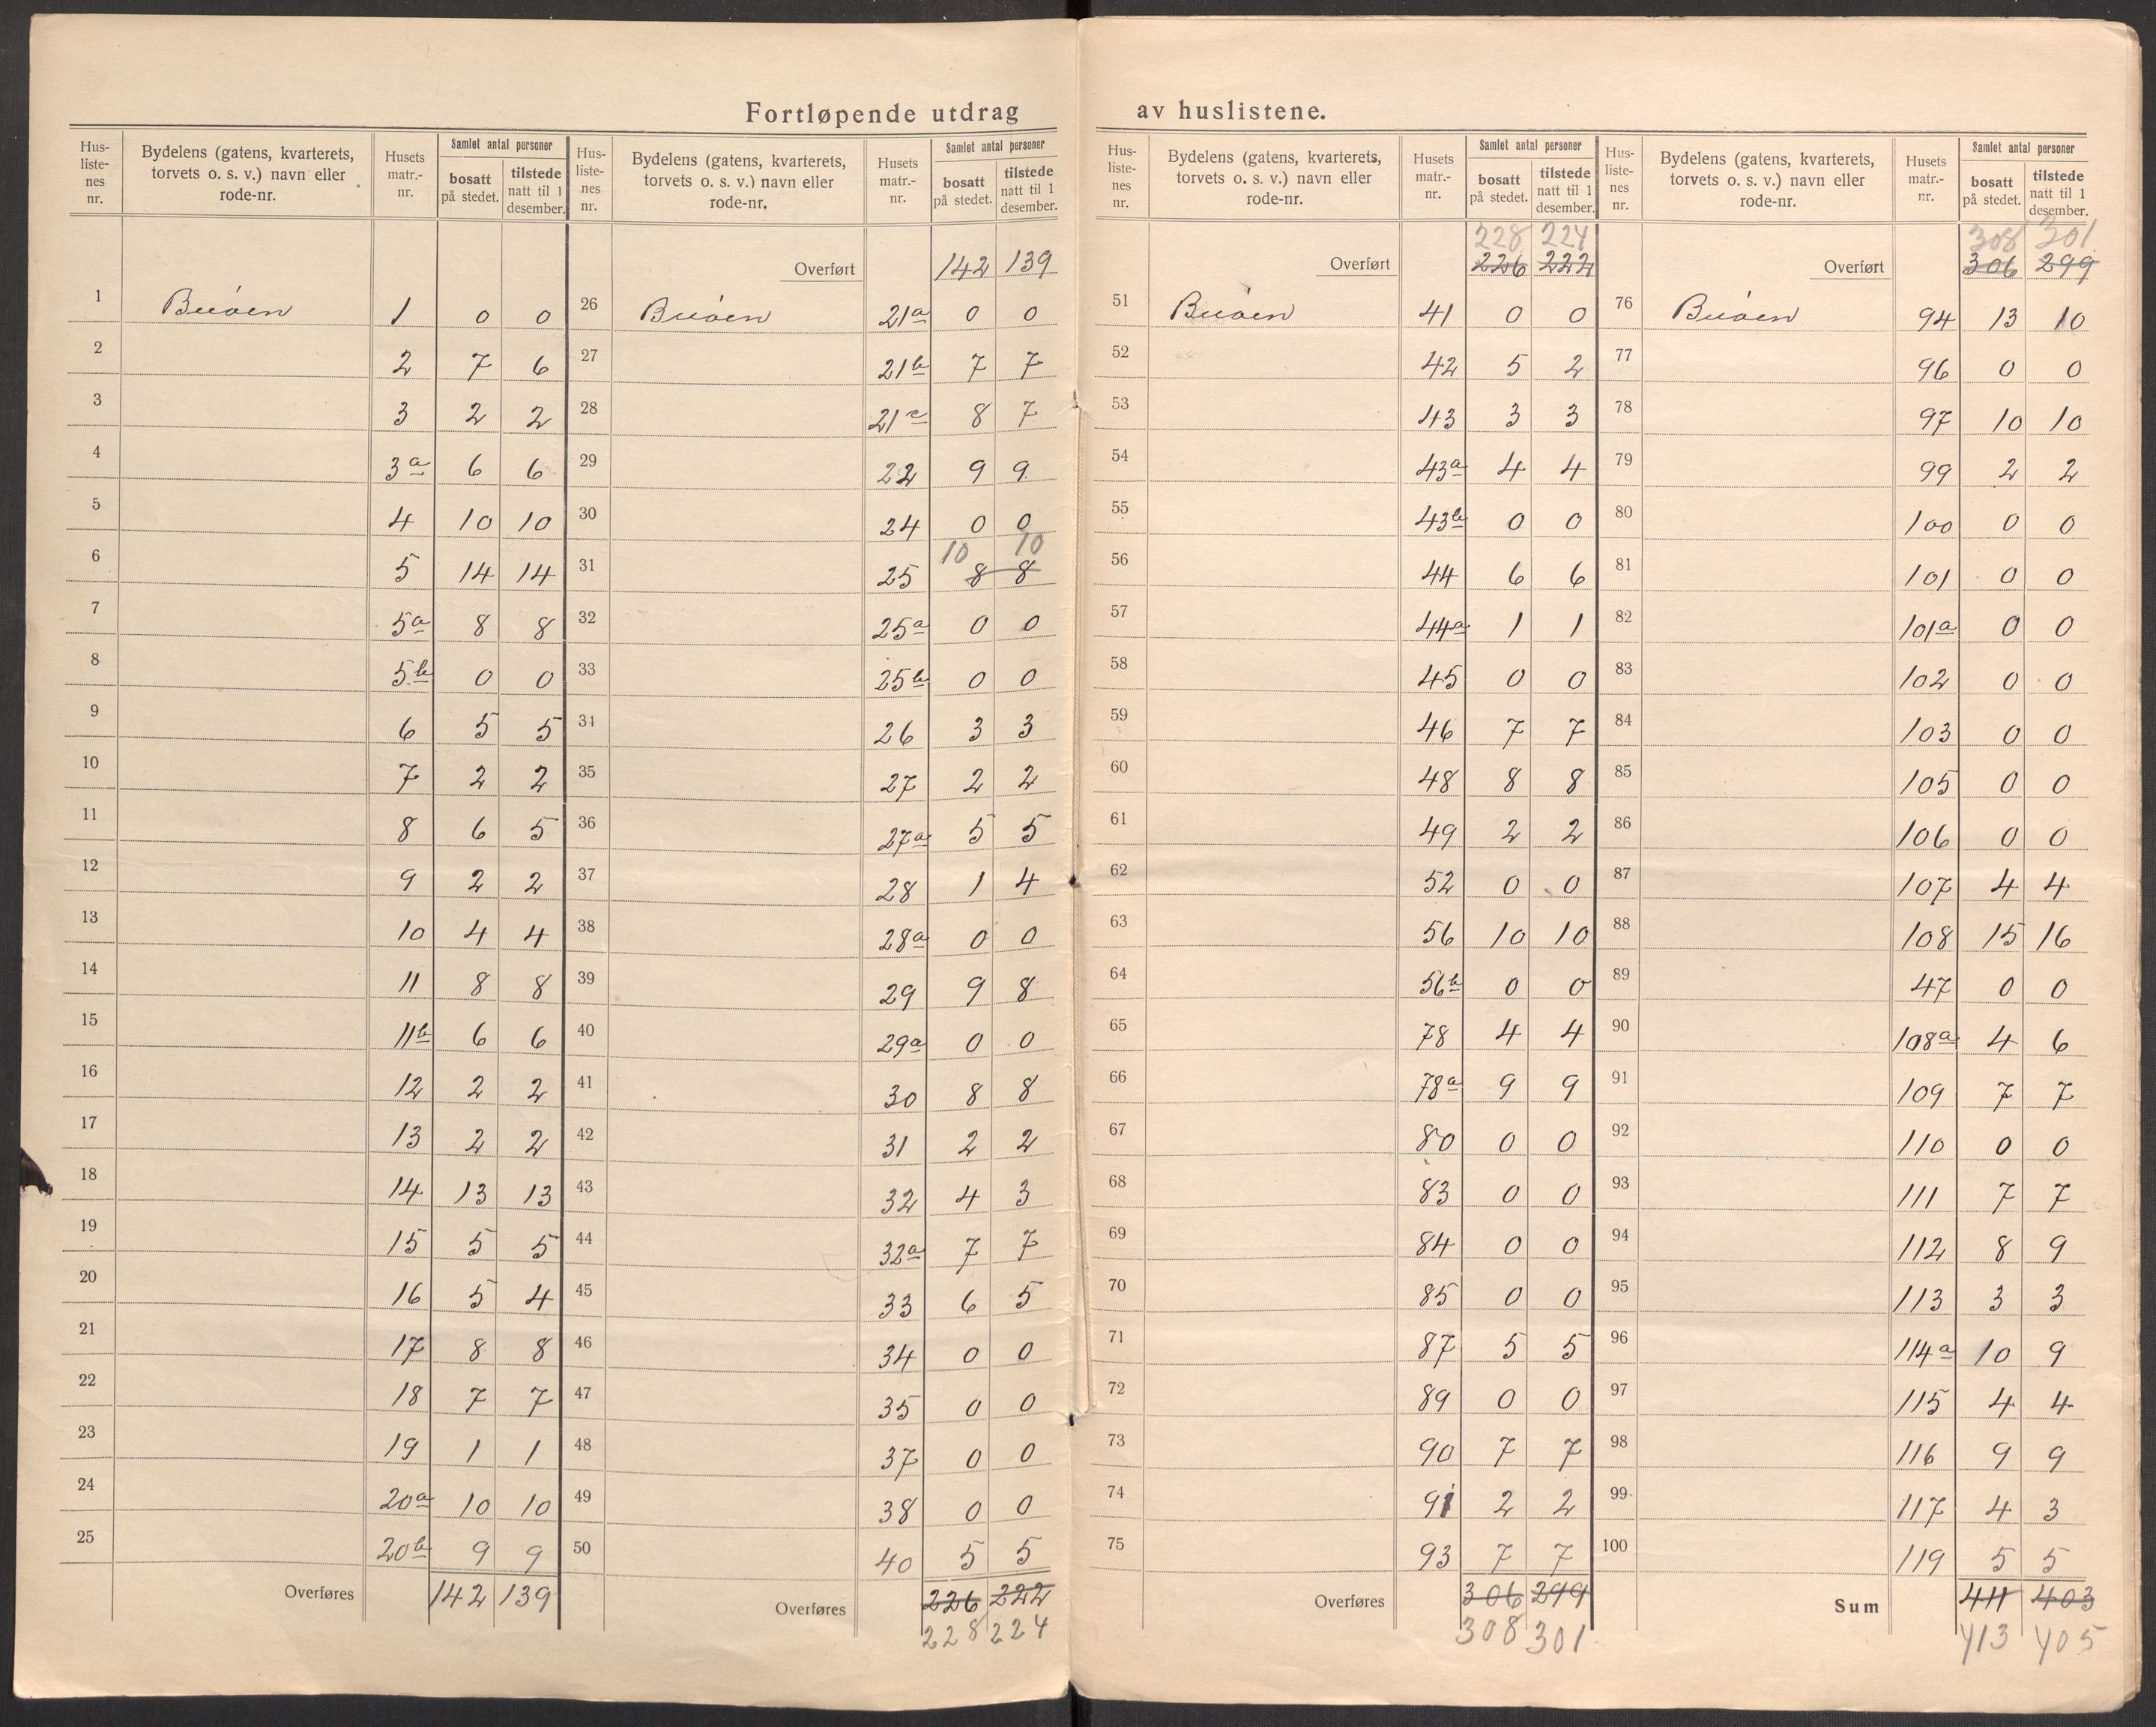 Fortløpende utdrag av huslistene.
Hus-liste-nes nr. | Bydelens (gatens, kvarterets, torvets o. s. v.) navn eller rode-nr. | Husets matr.-nr. | Samlet antal personer bosatt på stedet. | tilstede natt til 1 desember.
1 Buøen 1 0 0
2 2 7 6
3 3 2 2
4 3a 6 6
5 4 10 10
6 5 14 14
7 5a 8 8
8 5b 0 0
9 6 5 5
10 7 2 2
11 8 6 5
12 9 2 2
13 10 4 4
14 11 8 8
15 11b 6 6
16 12 2 2
17 13 2 2
18 14 13 13
19 15 5 5
20 16 5 4
21 17 8 8
22 18 7 7
23 19 1 1
24 20a 10 10
25 20b 9 9
Overføres 142 139
Hus-liste-nes nr. | Bydelens (gatens, kvarterets, torvets o. s. v.) navn eller rode-nr. | Husets matr.-nr. | Samlet antal personer bosatt på stedet. | tilstede natt til 1 desember.
Overført 142 139
26 Buøen 21a 0 0
27 21b 7 7
28 21c 8 7
29 22 9 9
30 24 0 0
10 10
31 25 8 8
32 25a 0 0
33 25b 0 0
34 26 3 3
35 27 2 2
36 27a 5 5
37 28 1 4
38 28a 0 0
39 29 9 8
40 29a 0 0
41 30 8 8
42 31 2 2
43 32 4 3
44 32a 7 7
45 33 6 5
46 34 0 0
47 35 0 0
48 37 0 0
49 38 0 0
50 40 5 5
Overføres 226 222
228 224
Hus-liste-nes nr. | Bydelens (gatens, kvarterets, torvets o. s. v.) navn eller rode-nr. | Husets matr.-nr. | Samlet antal personer bosatt på stedet. | tilstede natt til 1 desember.
228 224
Overført 226 222
51 Buøen 41 0 0
52 42 5 2
53 43 3 3
54 43a 4 4
55 43b 0 0
56 44 6 6
57 44a 1 1
58 45 0 0
59 46 7 7
60 48 8 8
61 49 2 2
62 52 0 0
63 56 10 10
64 56b 0 0
65 78 4 4
66 78a 9 9
67 80 0 0
68 83 0 0
69 84 0 0
70 85 0 0
71 87 5 5
72 89 0 0
73 90 7 7
74 91 2 2
75 93 7 7
Overføres 306 299
308 301
Hus-liste-nes nr. | Bydelens (gatens, kvarterets, torvets o. s. v.) navn eller rode-nr. | Husets matr.-nr. | Samlet antal personer bosatt på stedet. | tilstede natt til 1 desember.
308 301
Overført 306 299
76 Buøen 94 13 10
77 96 0 0
78 97 10 10
79 99 2 2
80 100 0 0
81 101 0 0
82 101a 0 0
83 102 0 0
84 103 0 0
85 105 0 0
86 106 0 0
87 107 4 4
88 108 15 16
89 47 0 0
90 108a 4 6
91 109 7 7
92 110 0 0
93 111 7 7
94 112 8 9
95 113 3 3
96 114a 10 9
97 115 4 4
98 116 9 9
99 117 4 3
100 119 5 5
Sum 411 403
413 405